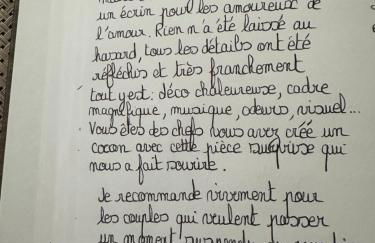 un écrin pour les amoureux de
l'amour. Rien n'a été laissé au
hasard, tous les détails ont été
réfléchis et très franchement
tout y est : déco chaleureuse, cadre
magnifique, musique, odeurs, visuel...
Vous êtes des chefs vous avez créé un
cocon avec cette pièce surprise qui
nous a fait sourire.
Je recommande vivement pour
les couples qui veulent passer
un moment